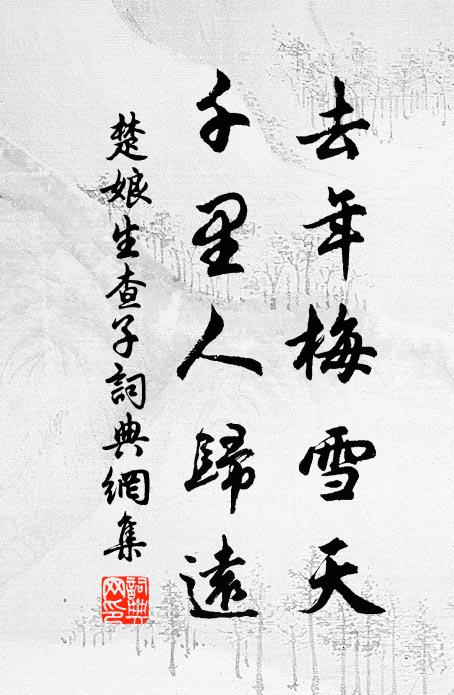 去年梅雪天
千里人歸遠
楚娘生查子詞典網集
詞典網印